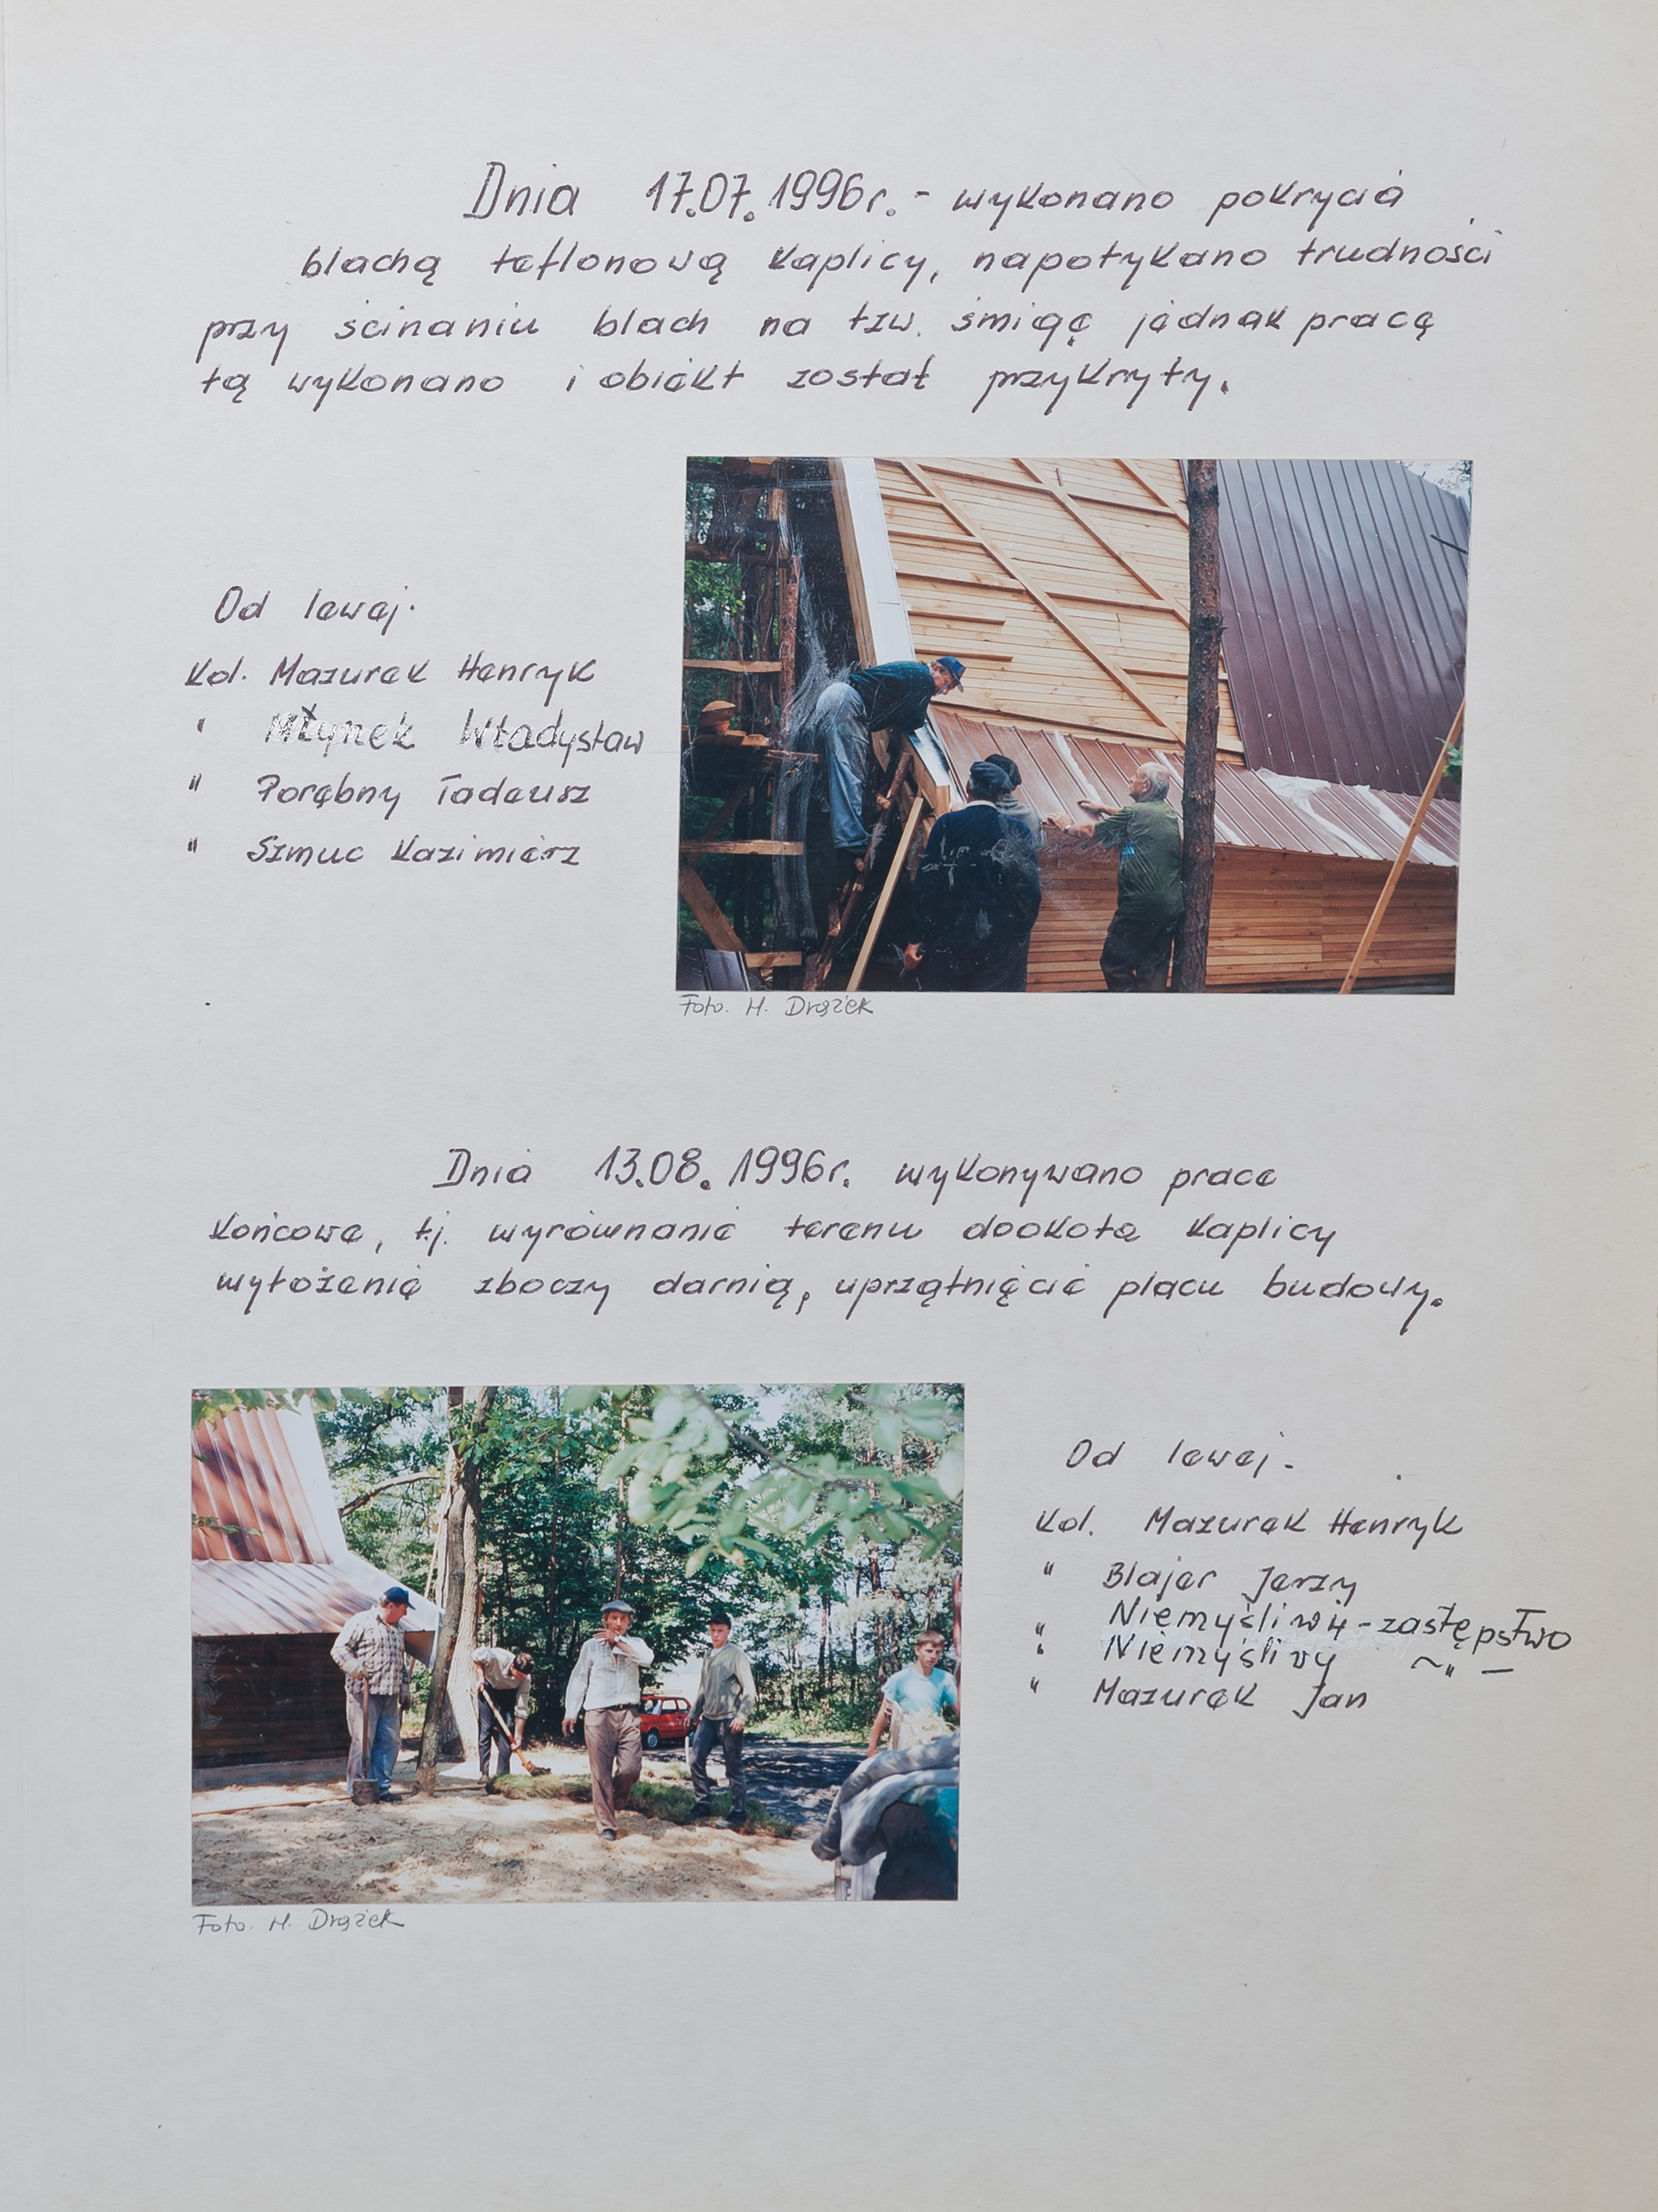 Dnia 17.07.1996r. - wykonano pokrycie
blachą teflonową kaplicy, napotykano trudności
przy ścinaniu blach na tzw. śmigę jednak pracę
tą wykonano i obiekt został przykryty.
Od lewej.
Kol. Mazurek Henryk
" Młynek Władysław
" Porębny Tadeusz
" Szmuc Kazimierz
Foto. H. Drążek
Dnia 13.08.1996r. wykonywano prace
końcowe, t.j. wyrównanie terenu dookoła kaplicy
wyłożenie zboczy darnią, uprzątnięcie placu budowy.
Od lewej.
Kol. Mazurek Henryk
" Blajer Jerzy
" Niemyśliwy - zastępstwo
" Niemyśliwy ~ " —
" Mazurek Jan
Foto. H. Drążek